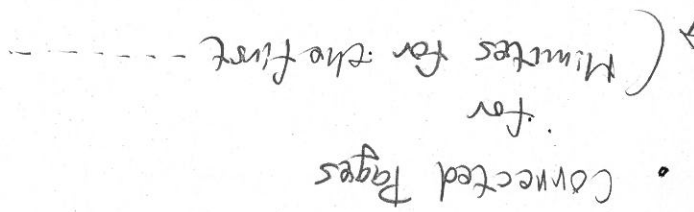 • Connected Pages
for
(Minutes for the first ------